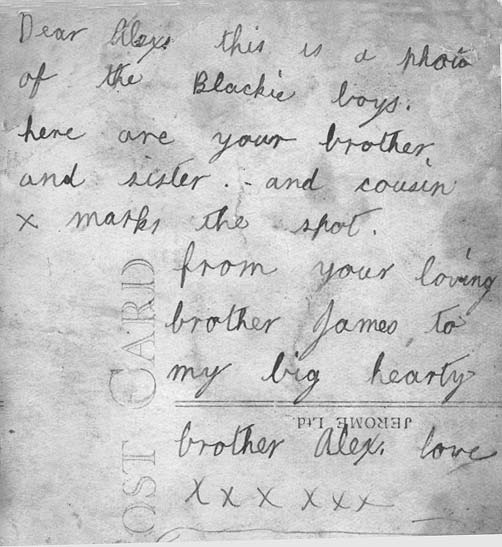 Dear Alex, this is a photo
of the Blackie boys.
here are your brother,
and sister. - and cousin
x marks the spot.
from your loving
brother James, to
my big hearty
brother Alex. love
X x x x x x
POST CARD
JEROME Ltd.